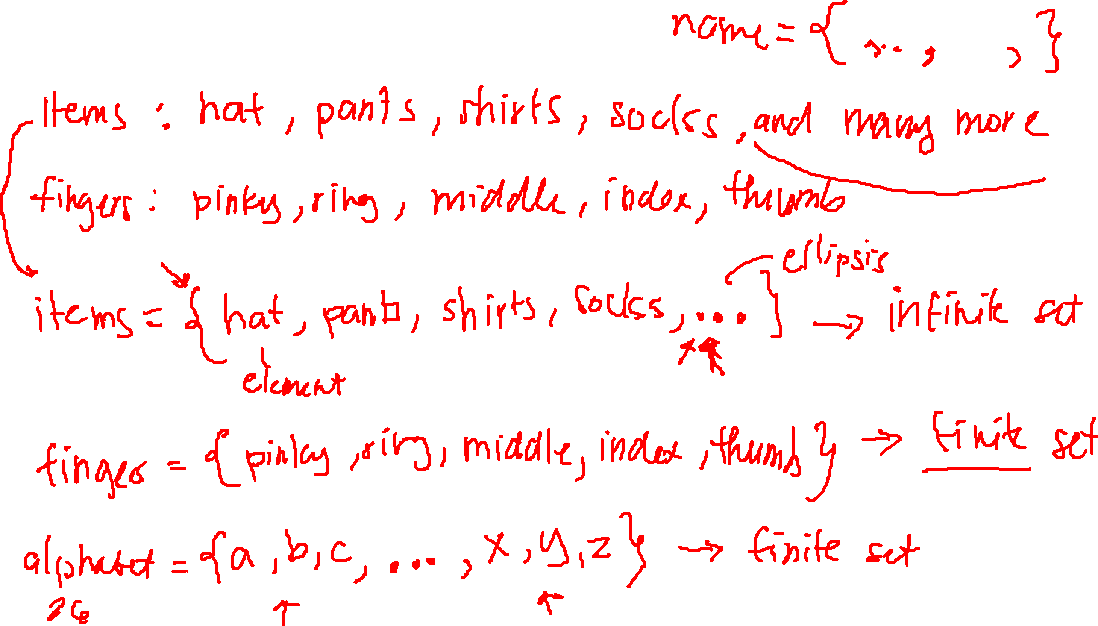 name = { ..., , }
Items : hat, pants, shirts, socks, and many more
fingers : pinky, ring, middle, index, thumb
ellipsis
items = { hat, pants, shirts, socks, ... } → infinite set
element
fingers = { pinky, ring, middle, index, thumb } → finite set
alphabet = { a, b, c, ..., x, y, z } → finite set
26